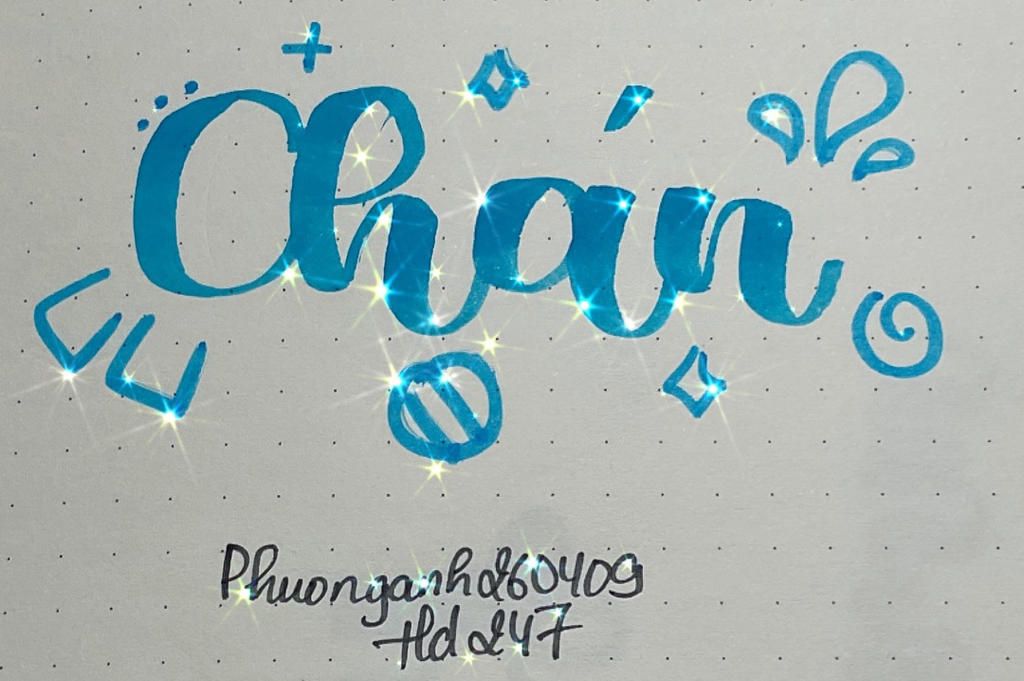 Chán
Phuonganh260409
Hd247